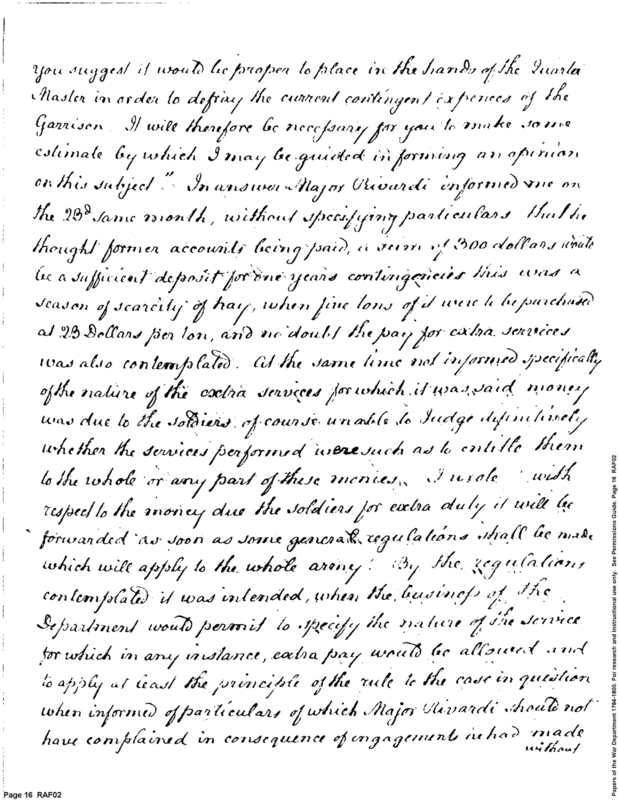 you suggest it would be proper to place in the hands of the Quarter
Master in order to defray the current contingent expences of the
Garrison. It will therefore be necessary for you to make some
estimate by which I may be guided in forming an opinion
on this subject." In answer Major Rivardi informed me on
the 23d same month, without specifying particulars that he
thought former accounts being paid, a sum of 300 dollars would
be a sufficient deposit for one years contingencies this was a
season of scarcity of hay, when five tons of it were to be purchased
at 23 Dollars per ton, and no doubt the pay for extra services
was also contemplated. At the same time not informed specifically
of the nature of the extra services for which it was said money
was due to the soldiers of course unable to Judge definitively
whether the services performed were such as to entitle them
to the whole or any part of these monies, I wrote "with
respect to the money due the soldiers for extra duty it will be
forwarded as soon as some general regulations shall be made
which will apply to the whole army." By the regulations
contemplated it was intended, when the business of the
Department would permit to specify the nature of the service
for which in any instance, extra pay would be allowed and
to apply at least the principle of the rule to the case in question
when informed of particulars of which Major Rivardi should not
have complained in consequence of engagements he had made
without
Page 16 RAF02
Papers of the War Department 1784-1800. For research and instructional use only. See Permissions Guide. Page 16 RAF02